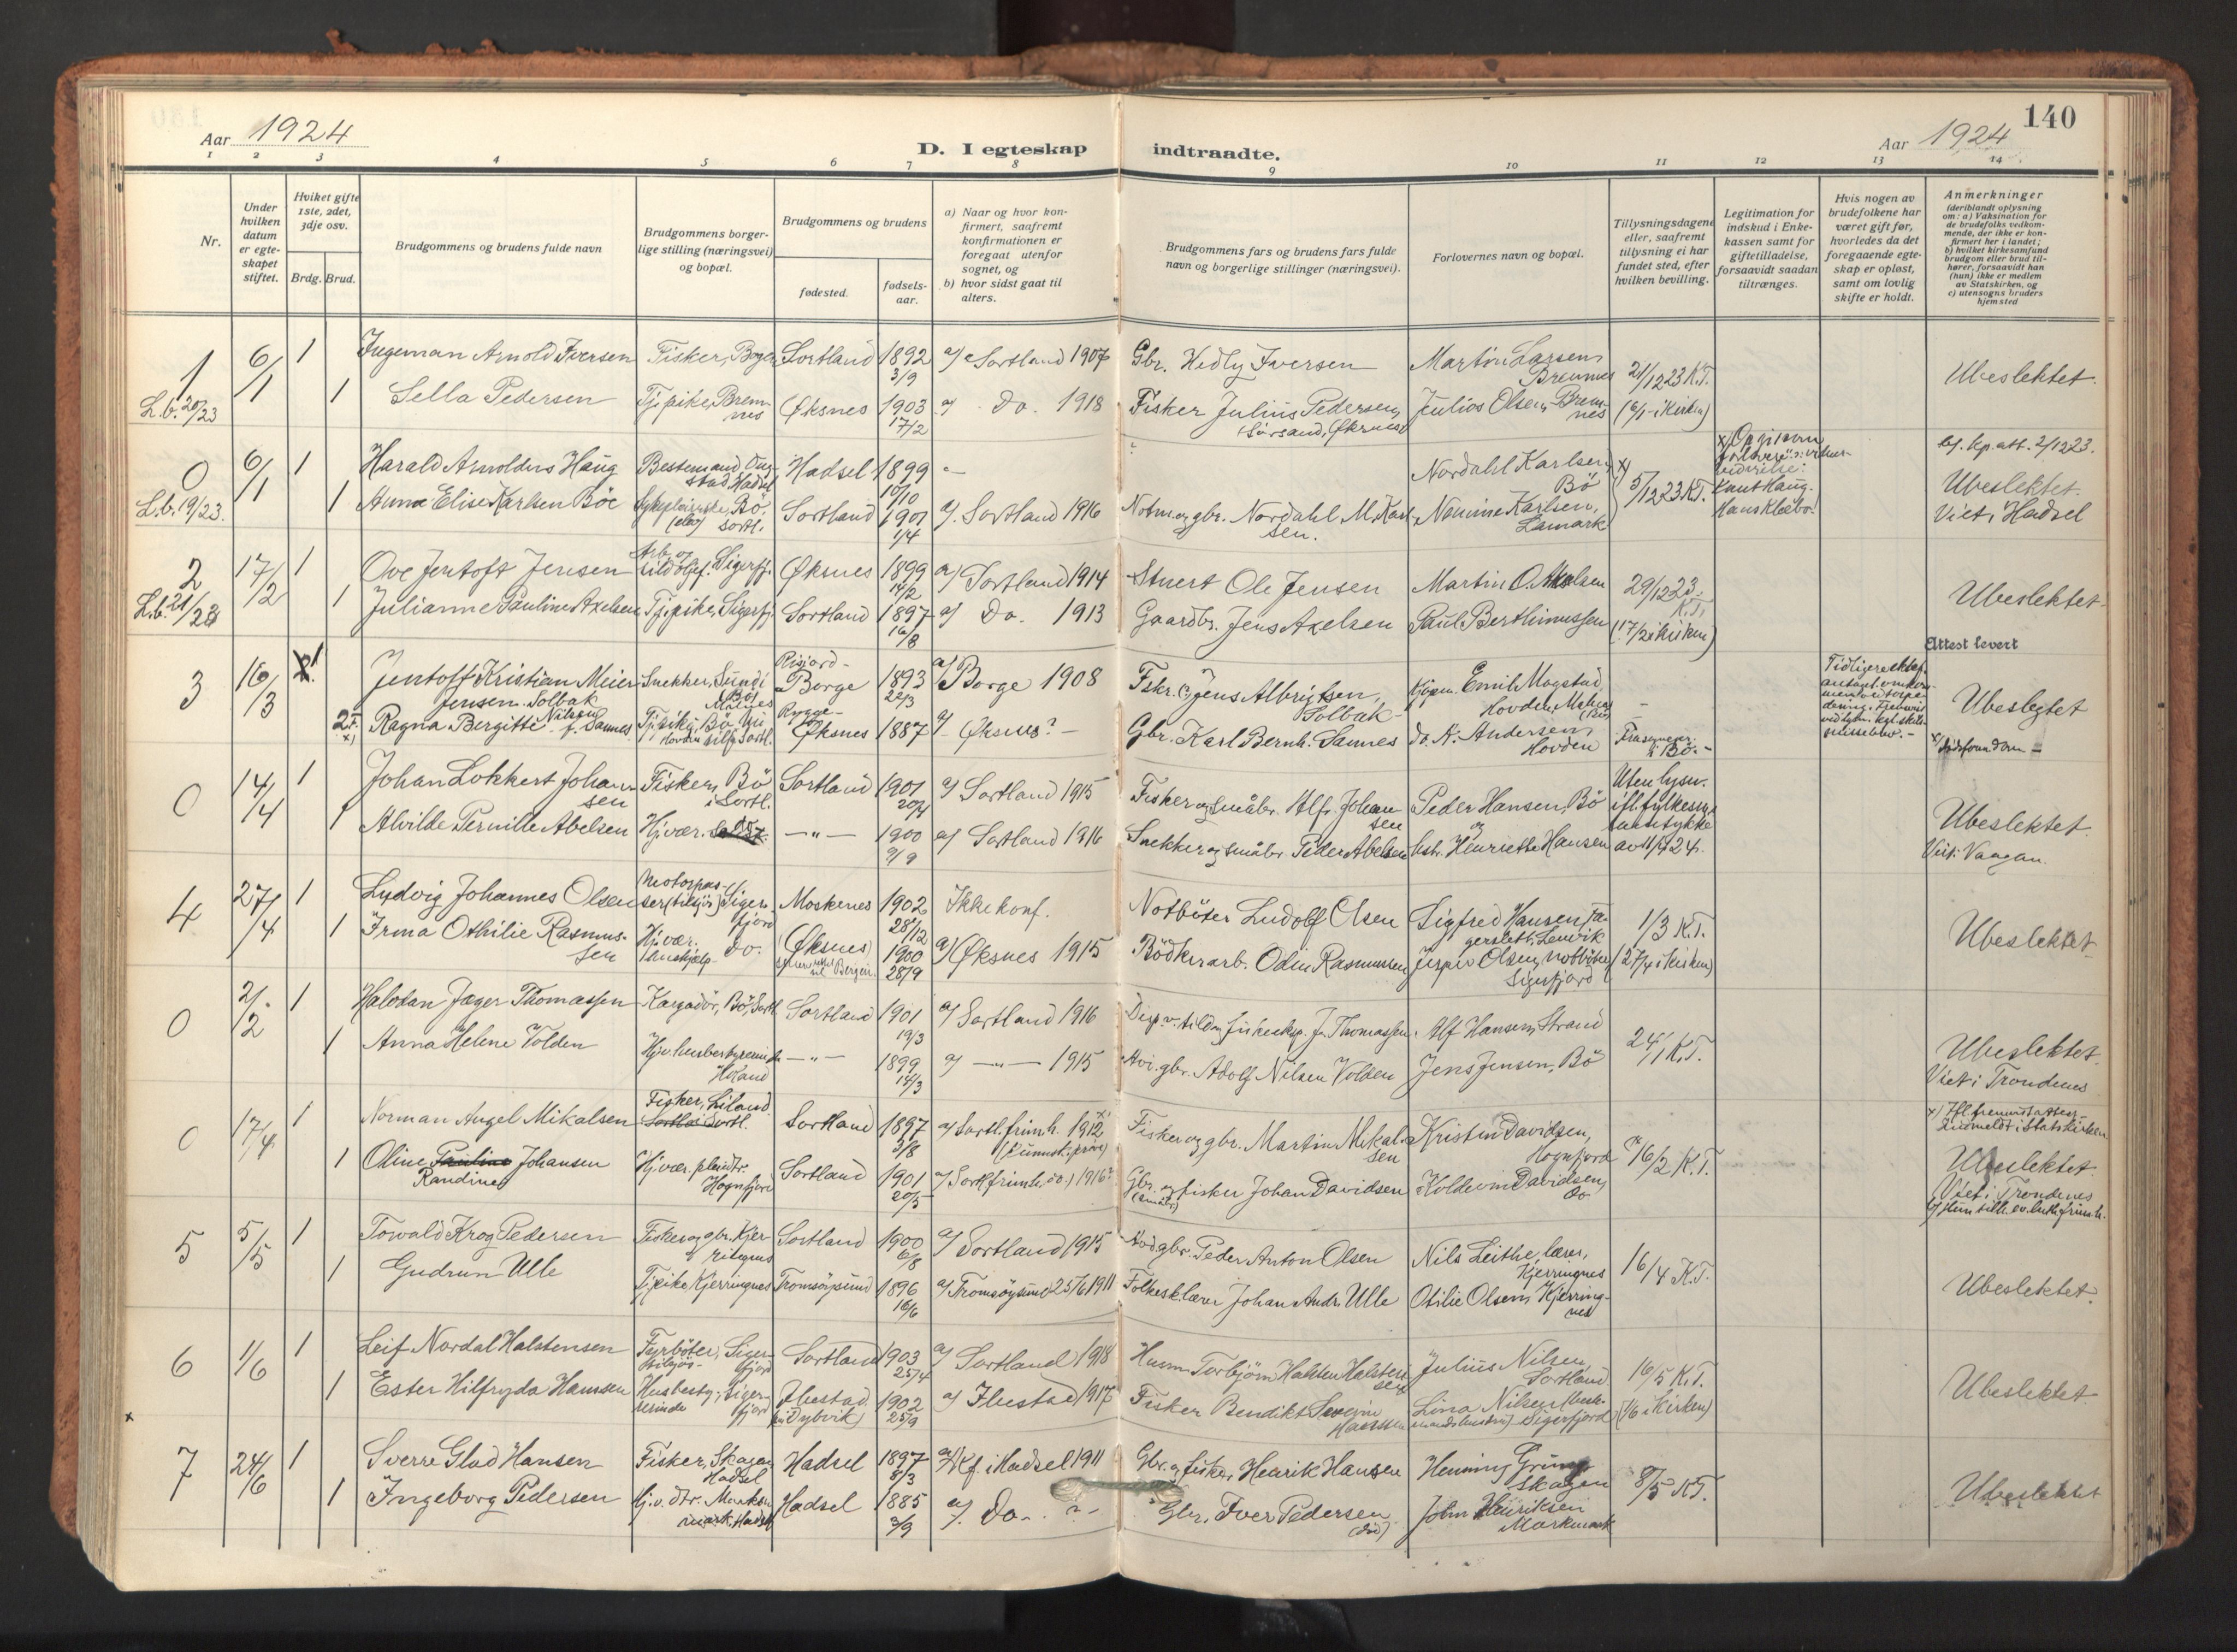 140
Aar 1924
D. I egteskap indtraadte.
Aar 1924
1 2 3 4 5 6 7 8 9 10 11 12 13 14
Nr.
Under hvilken datum er egteskapet stiftet.
Hviket gifte 1ste, 2det, 3dje osv.
Brdg. Brud.
Brudgommens og brudens fulde navn
Brudgommens borgerlige stilling (næringsvei) og bopæl.
Brudgommens og brudens
fødested.
fødselsaar.
a) Naar og hvor konfirmert, saafremt konfirmationen er foregaat utenfor sognet, og
b) hvor sidst gaat til alters.
Brudgommens fars og brudens fars fulde navn og borgerlige stillinger (næringsvei).
Forlovernes navn og bopæl.
Tillysningsdagene eller, saafremt tillysning ei har fundet sted, efter hvilken bevilling.
Legitimation for indskud i Enkekassen samt for giftetilladelse, forsaavidt saadan tiltrænges.
Hvis nogen av brudefolkene har været gift før, hvorledes da det foregaaende egteskap er opløst, samt om lovlig skifte er holdt.
Anmerkninger (deriblandt oplysning om: a) Vaksination for de brudefolks vedkommende, der ikke er konfirmert her i landet; b) hvilket kirkesamfund brudgom eller brud tilhører, forsaavidt han (hun) ikke er medlem av Statskirken, og c) utensogns bruders hjemsted
1 6/1 1 Ingeman Arnold Iversen Fisker, Bogen Sortland 1892 3/9 a/ Sortland 1907 Gbr. Hedly Iversen Martin Larsen, Bremnes 21/12 23 K.T. Ubeslektet.
L.b. 20/23 1 Sella Pedersen Tj.pike, Bremnes Øksnes 1903 17/2 a/ Do. 1918 Fisker Julius Pedersen, Øksnes Julius Olsen, Bremnes (6/1 i Kirken)
0 6/1 1 Harald Arnoldus Haug Bestemand Hadsel 1899 10/10 - Nordahl Karlsen, Bö 5/12 23 K.T. Knut Haug. Hans Klæbo. att. 2/12 23. Ubeslektet.
L.b. 19/23. 1 Anna Elise Karlsen Böe Bö, Sortl. Sortland 1901 1/4 a/ Sortland 1916 Notm. og gbr. Nordahl M. Karlsen. Karlsen, Lamark Viet i Hadsel
2 17/2 1 Ove Jentoft Jensen Arb. og Sigerfj. Øksnes 1899 14/2 a/ Sortland 1914 Stuert Ole Jensen Martin O. 29/12 23. K.T. Ubeslektet.
L.b. 21/23 1 Julianne Pauline Axelsen Tj.pike, Sigerfj. Sortland 1897 16/8 a/ Do. 1913 Gaardbr. Jens Axelsen Paul Berthinussen (17/2 i kirken)
3 16/3 1 Jentoff Kristian Meier Jensen Solbak Snekker, Borge 1893 22/3 a/ Borge 1908 Fskr. Jens Albrigtsen Solbak Kjøpm. Emil Mogstad, Hovden, Malnes - Attest levert Ubeslegtet
2 Ragna Bergitte Nilsen f. Sannes Tj.pike, Bø Øksnes 1887 a/ Øksnes? - Gbr. Karl Bernh. Sannes do. N. Andersen, Hovden
0 14/4 1 Johan Lokkert Johansen Fisker, Bö i Sortl. Sortland 1901 20/4 a/ Sortland 1915 Fisker og småbr. Alfr. Johansen Peder Hansen, Bö Uten lysn. ifl. fylkesm. samtykke av 11/4 24. Ubeslektet.
1 Alvilde Pernille Abelsen Hj.vær. do. -"- 1900 9/9 a/ Sortland 1916 Snekker og småbr. Peder Abelsen og Henriette Hansen Viet i Vaagan.
4 27/4 1 Ludvig Johannes Olsen Motorpasser (tilsjös) Sigerfjord Moskenes 1902 28/12 Ikke konf. Notböter Ludolf Olsen Sigfred Hansen, Lenvik 1/3 K.T. Ubeslektet
1 Irma Othilie Rasmussen Hj.vær. hushjælp do. Øksnes 1900 28/9 a/ Øksnes 1915 Bödkerarb. Odin Rasmussen Jesper Olsen, notböter, Sigerfjord (27/4 i kirken)
0 2/2 1 Halvdan Jager Thomassen Bö, Sortl. Sortland 1901 19/3 a/ Sortland 1916 J. Thomassen Alf Hansen, Strand 24/1 K.T. Ubeslektet.
1 Anna Helene Volden Hj.v. husbestyrerinde Holand -"- 1899 14/3 a/ -"- 1915 gbr. Adolf Nilsen Volden Jens Jensen, Bö Viet i Trondenes
0 17/4 1 Norman Angel Mikalsen Fisker, Liland Sortl. Sortland 1897 3/8 a/ Sortl. frimh. 1912 Fisker og gbr. Martin Mikalsen Kristin Davidsen, Hognfjord 16/2 K.T. Indmeldt i Statskirken
1 Oline Pauline Randine Johansen Hj.vær. pleiedtr. Hognfjord Sortland 1901 20/5 a/ Sortl. frimh. 1916? Gbr. og fisker Johan Davidsen (småbr.) Koldevin Davidsen, do Ubeslektet. Viet i Trondenes
5 5/5 1 Torvald Krog Pedersen Fisker og gbr. Kjerringnes Sortland 1900 6/8 a/ Sortland 1915 gbr. Peder Anton Olsen Nils Leithe, lærer, Kjerringnes 16/4 K.T. Ubeslektet.
1 Gudrun Ulle Tj.pike Kjerringnes Tromsöysund 1896 16/6 a/ Tromsöysund 25/6 1911 Folkesk.lærer Johan Andr. Ulle Otilie Olsen, Kjerringnes
6 1/6 1 Leif Nordal Halstensen Fyrböter, tilsjös Sigerfjord Sortland 1903 25/4 a/ Sortland 1918 Husm. Torbjörn Halsten Halstensen Julius Nilsen, Sortland 16/5 K.T. Ubeslektet
1 Ester Hilfryda Hanssen Husbestyrerinde Sigerfjord Ibestad 1902 25/9 a/ Ibestad 1917 Fisker Bendikt Severin Hanssen Lina Nilsen Sigerfjord (1/6 i Kirken)
7 24/6 1 Sverre Glad Hansen Fisker, Skagen Hadsel Hadsel 1897 8/3 a/ Kf. i Hadsel 1911 Gbr. og fisker Henrik Hansen Henning Skagen 8/5 K.T. Ubeslektet
1 Ingeborg Pedersen Hj.v. dtr. Hadsel Hadsel 1885 3/9 a/. Do. - ? - Gbr. Iver Pedersen (död) John Henriksen Markmark